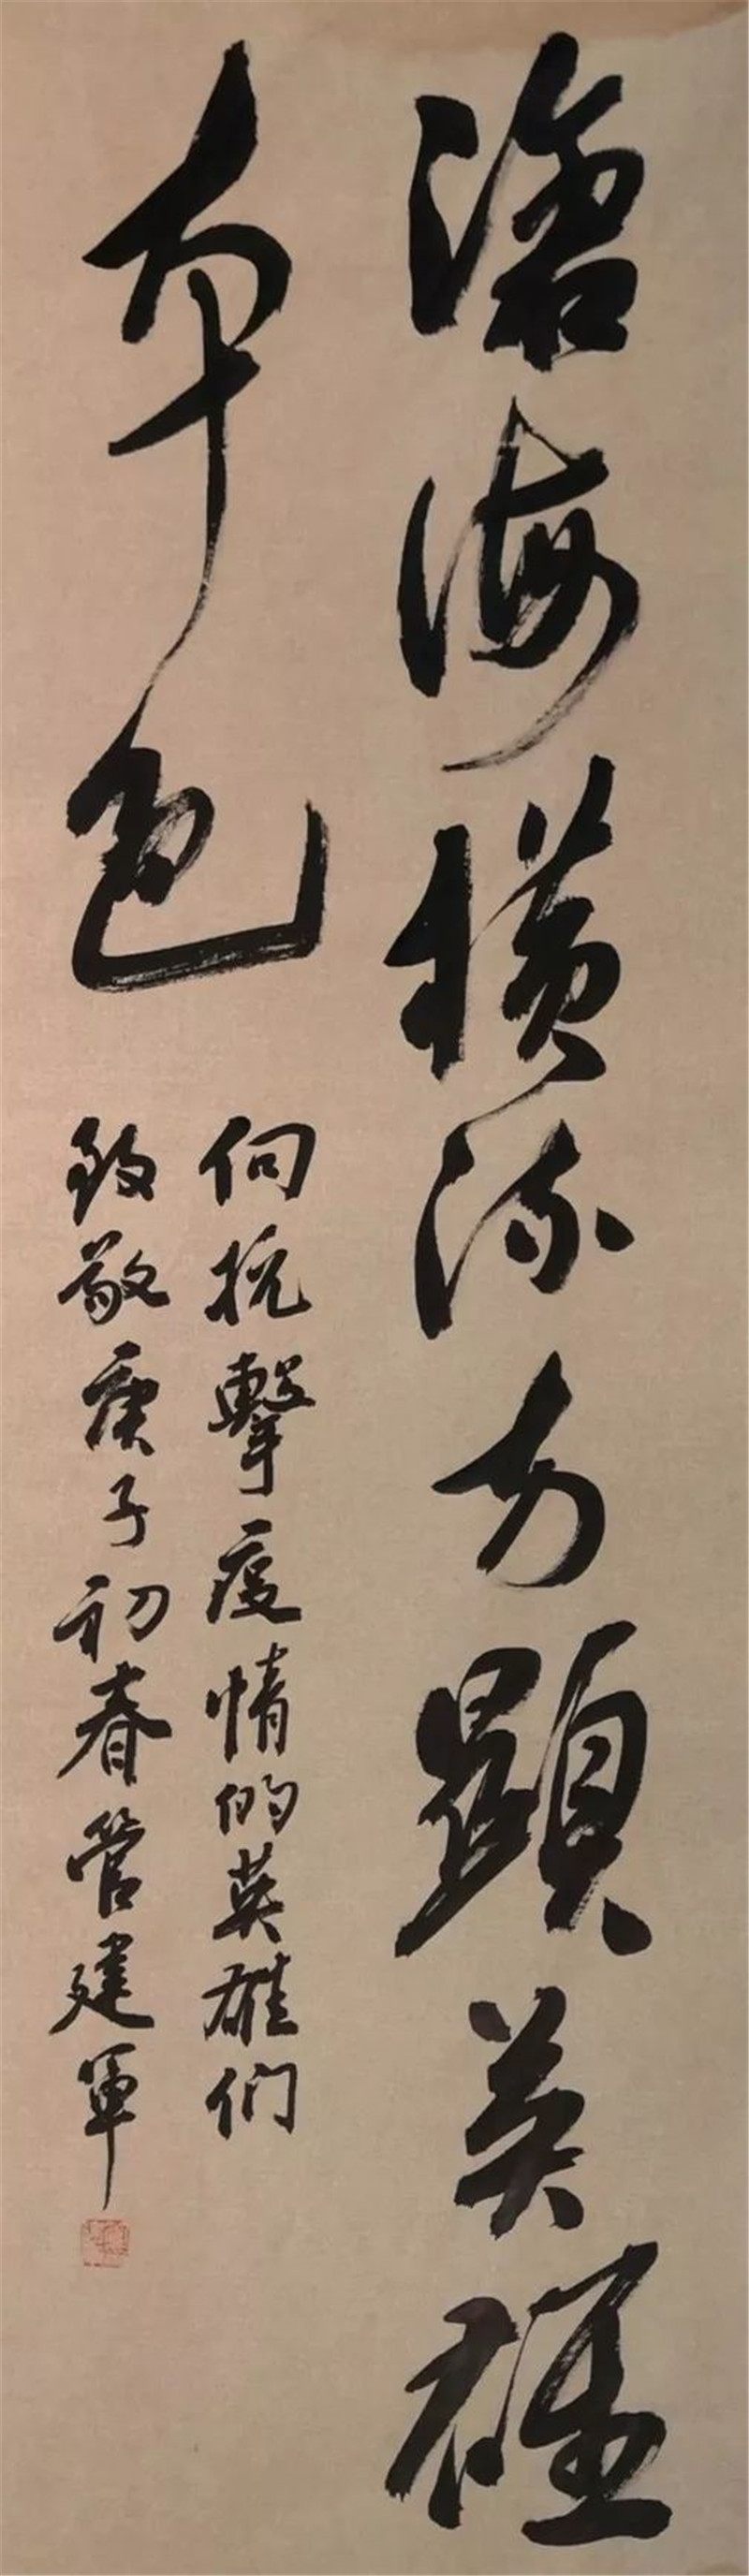 滄海横流方顯英雄
本色
向抗擊疫情的英雄们
致敬庚子初春管建軍